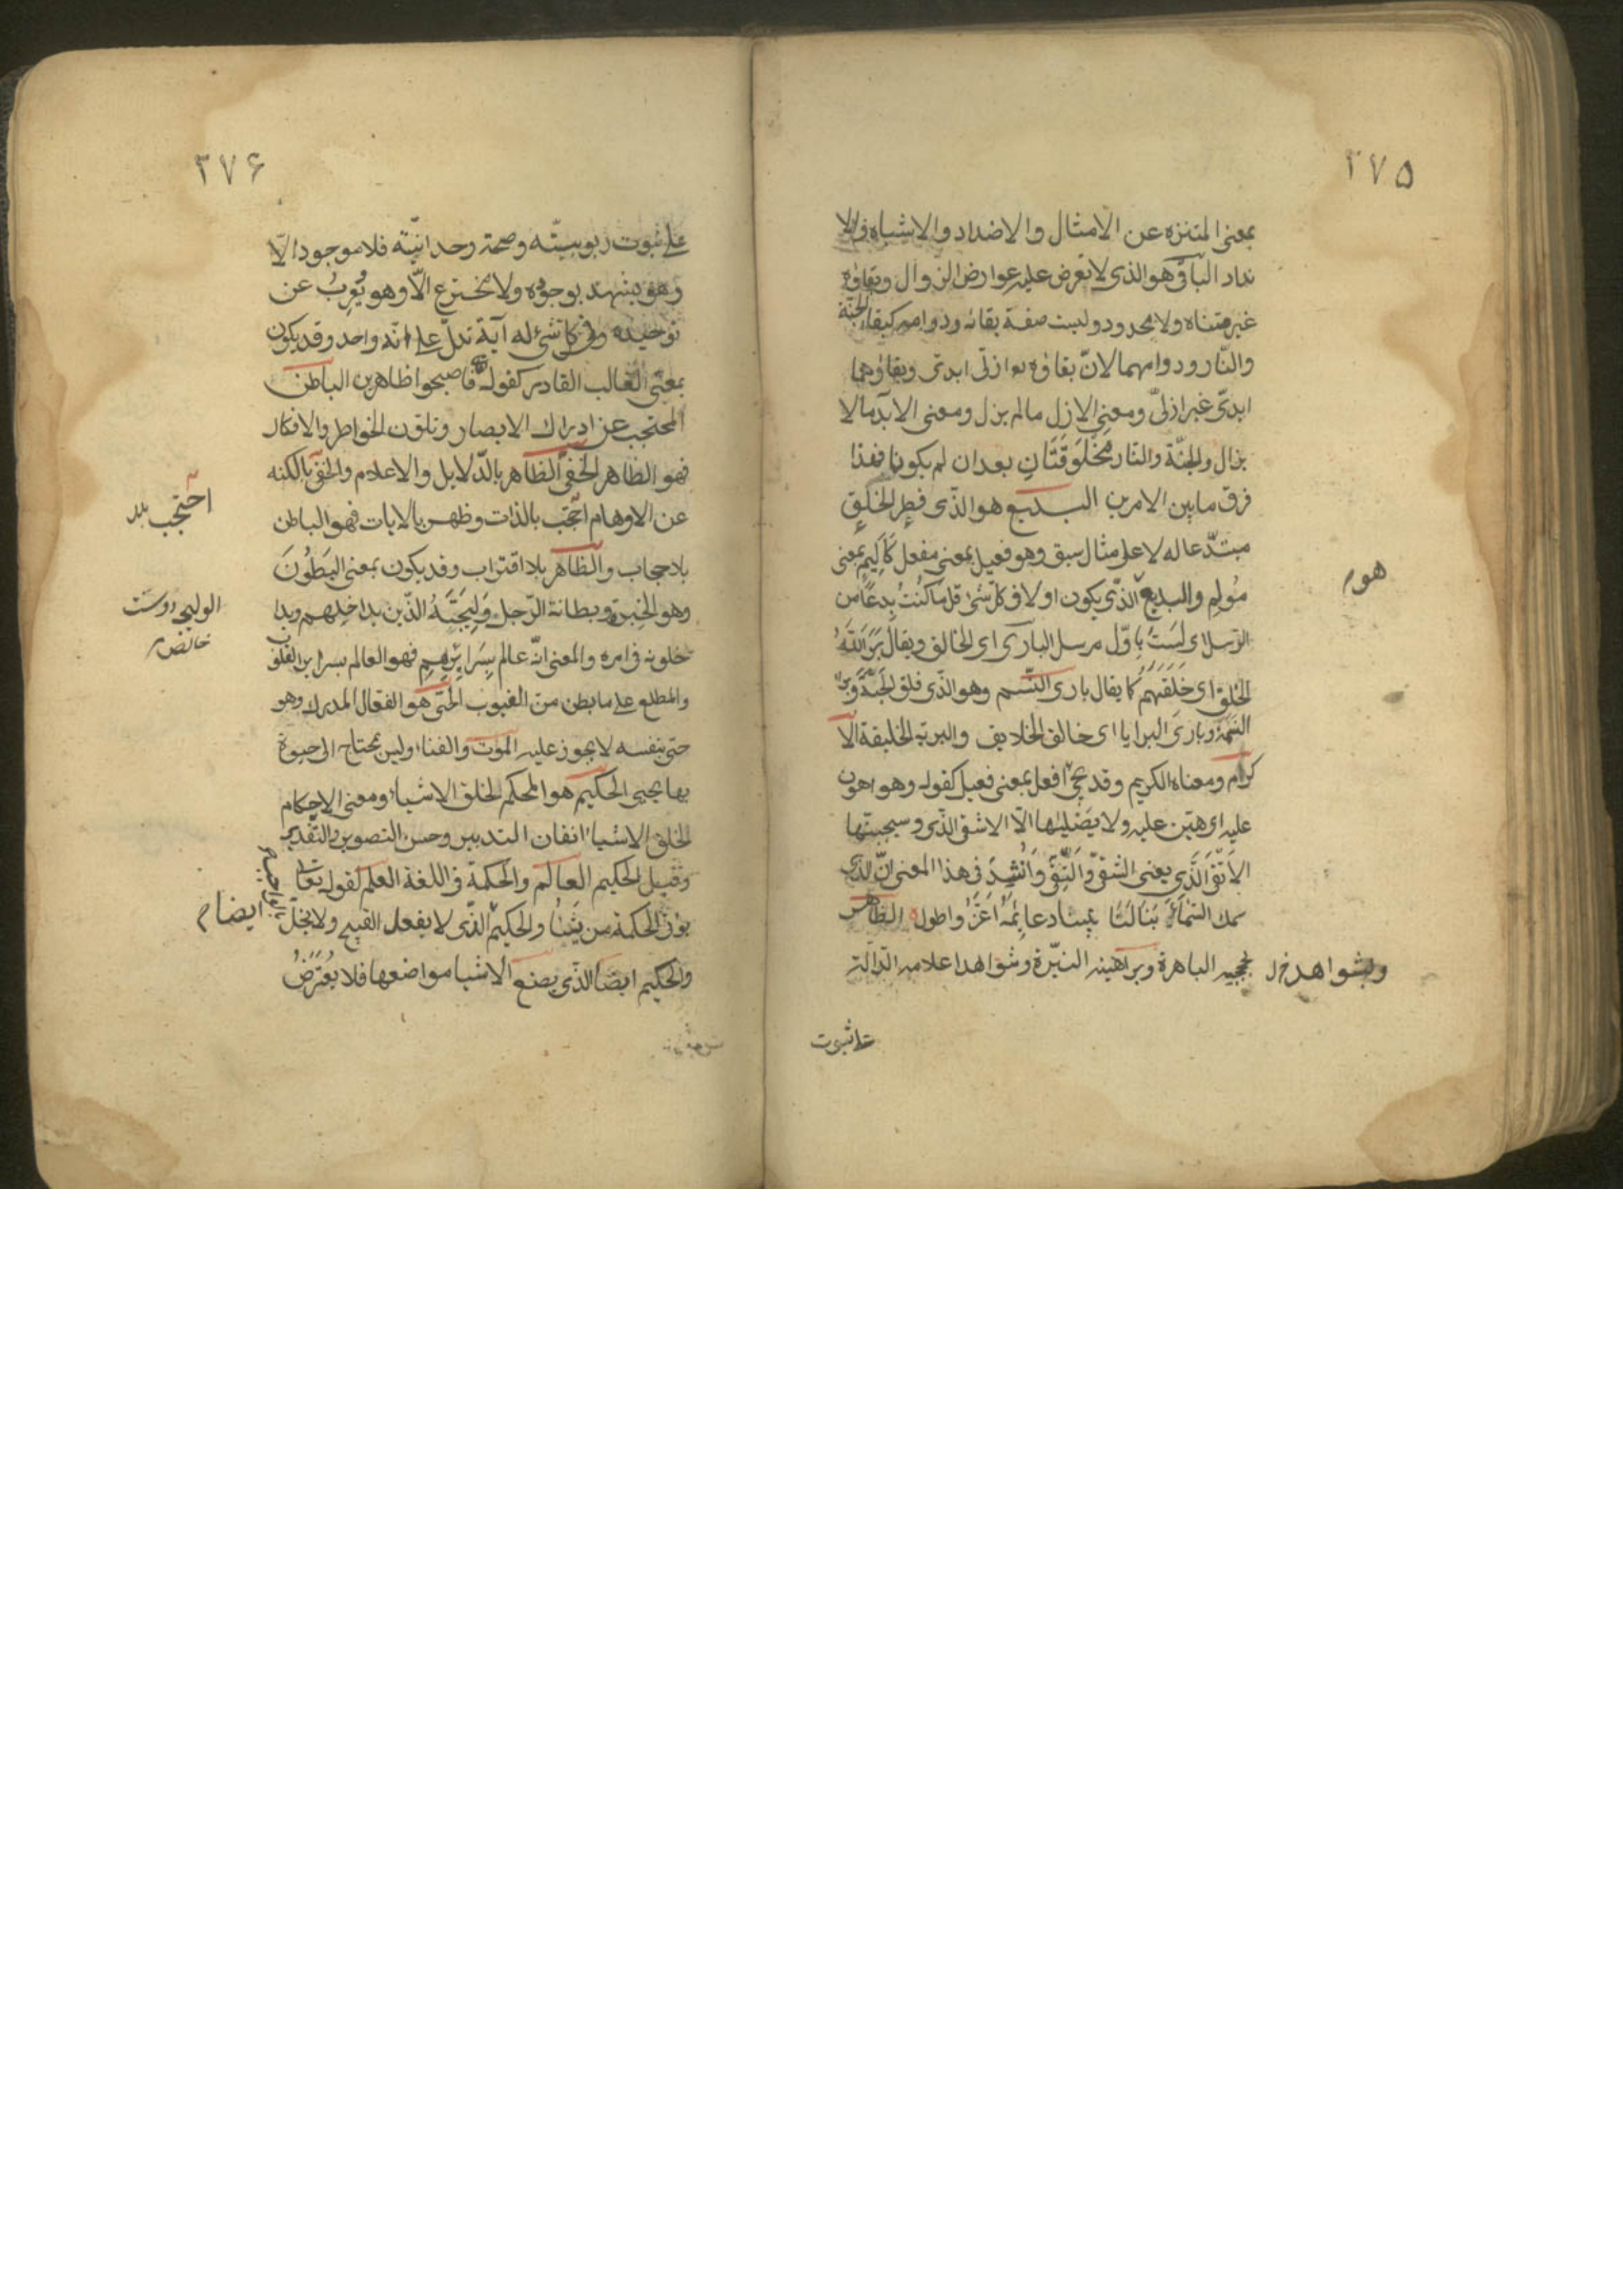 ٢٧٥
بمعنى المتنزه عن الامثال والاضداد والاشباه والا
نداد الباقى هو الذى لا تعرض عليه عوارض الزوال وبقاؤه
غير متناه ولا محدود وليست صفة بقائه ودوامه كبقاء الجنّة
والنّار ودوامهما لانّ بقاؤه ازلى ابدى وبقاؤهما
ابدىّ غير ازلىّ ومعنى الازل ما لم يزل ومعنى الابد ما لا
يزال والجنّة والنار مخلوقتان بعد ان لم يكونا فهذا
فرق ما بين الامرين البديع هو الذى فطر الخلق
مبتدعا له لا على مثال سبق وهو فعيل بمعنى مفعل كاليم بمعنى
هو م
مؤلم والبديع الذى يكون اولا فى كلّ شئ قل ما كنت بدعًا من
الرّسل اى لست باوّل مرسل البارى اى الخالق ويقال برأ الله
الخلق اى خلقهم كما يقال بارى النّسم وهو الذى فلق الحبّة وبرأ
النسمة وبارئ البرايا اى خالق الخلايق والبرية الخليقة الا
كرام ومعناه الكريم وقد يجئ افعل بمعنى فعيل كقوله وهو اهون
عليه اى هيّن عليه ولا يصليها الّا الاشقى الذى وسيجنبها
الاتقى الذى يعنى الشقىّ والتقىّ وانشد فى هذا المعنى انّ الذى
سمك السّماء بنا لنا بيتا دعائمه اعزّ واطول الظاهر
وبشواهد خ ل
بحججه الباهرة وبراهينه النيّرة وشواهد اعلامه الدّالة
على ثبوت
٢٧۶
على ثبوت ربوبيته وصحة وحدانيّته فلا موجود الّا
وهو يشهد بوجوده ولا مخترع الّا وهو يُعرِبُ عن
توحيده وفى كل شئ له آية تدلّ على انّه واحد وقد يكون
بمعنى الغالب القادر كقوله فاصبحوا ظاهرين الباطن
المحتجب عن ادراك الابصار وتلوّن الخواطر والافكار
فهو الظاهر الخفى الظاهر بالدّلايل والاعلام والخفى بالكنه
احتجب
عن الاوهام احتجب بالذات وظهر بالايات فهو الباطن
بلا حجاب والظاهر بلا اقتراب وقد يكون بمعنى البطون
وهو الخبرة وبطانة الرّجل وليجته الذين يداخلهم ويدا
خلونه فى امره والمعنى انّه عالم بسرايرهم فهو العالم بسراير القلوب
والمطلع على ما بطن من الغيوب الحى هو الفعال المدرك وهو
حى بنفسه لا يجوز عليه الموت والفناء وليس بمحتاج الى حيوة
بها يحيى الحكيم هو المحكم لخلق الاشياء ومعنى الاحكام
لخلق الاشياء اتقان التدبير وحسن التصوير والتّقدير
وقيل الحكيم العالم والحكمة فى اللغة العلم لقوله تعالى
يؤتى الحكمة من يشاء والحكيم الذى لا يفعل القبيح ولا يخلّ
ايضا م
والحكيم ايضا الذى يضع الاشيا مواضعها فلا يعترض